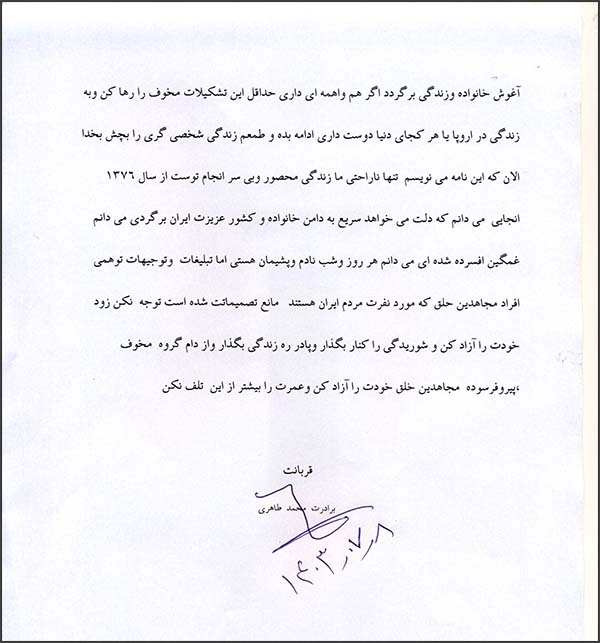 آغوش خانواده وزندگی برگردد اگر هم واهمه ای داری حداقل این تشکیلات مخوف را رها کن وبه
زندگی در اروپا یا هر کجای دنیا دوست داری ادامه بده و طمعم زندگی شخصی گری را بچش بخدا
الان که این نامه می نویسم تنها ناراحتی ما زندگی محصور وبی سر انجام توست از سال ۱۳۷۶
انجایی می دانم که دلت می خواهد سریع به دامن خانواده و کشور عزیزت ایران برگردی می دانم
غمگین افسرده شده ای می دانم هر روز وشب نادم وپشیمان هستی اما تبلیغات وتوجیهات توهمی
افراد مجاهدین حلق که مورد نفرت مردم ایران هستند مانع تصمیماتت شده است توجه نکن زود
خودت را آزاد کن و شوریدگی را کنار بگذار وپادر ره زندگی بگذار واز دام گروه مخوف
،پیروفرسوده مجاهدین خلق خودت را آزاد کن وعمرت را بیشتر از این تلف نکن
قربانت
برادرت محمد طاهری
۱۴۰۳ر۷ر۸